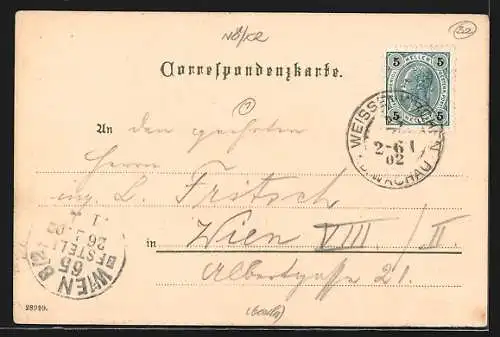 NÖ/K2
32
Correspondenzkarte.
5 HELLER 5
5 HELLER 5
C
WEISSENKIRCHEN
2-6 1
02
WACHAU
An den geehrten
Herrn
ing. L. Fritsch
in Wien VIII / II.
Albertgasse 21.
WIEN 8/2
65
BESTELLT
26
1
02
28940.